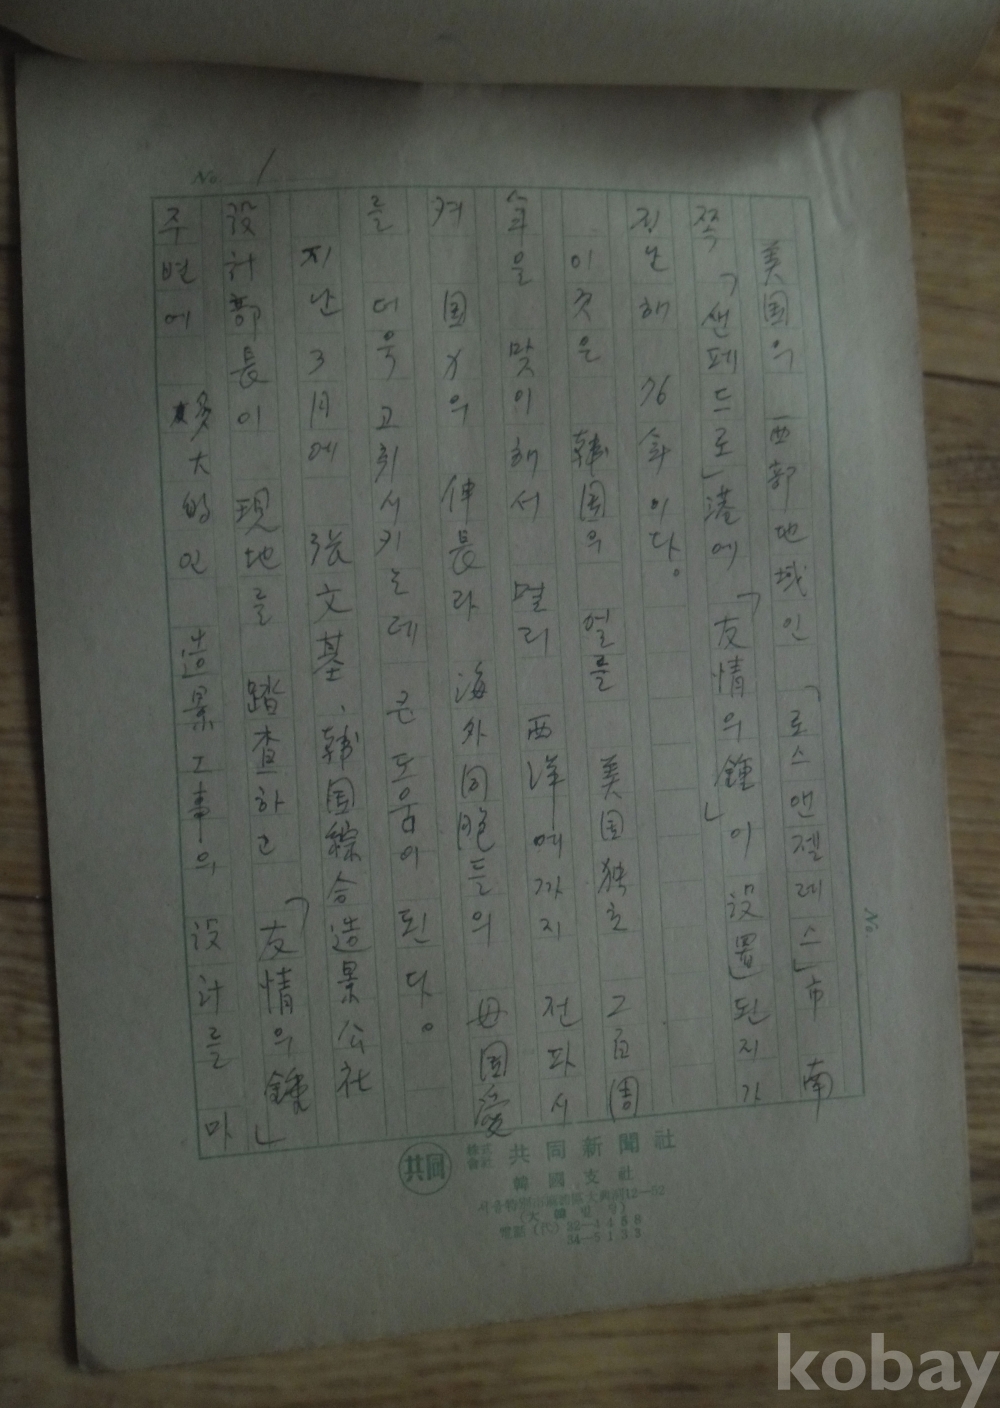 No. 1
美国의 西部地域인 「로스앤젤레스」市 南
쪽 「샌페드로」港에 「友情의 鍾」이 設置된지가
지난해 76年이다.
이것은 韓国의 얼을 美国独立 2百周
年을 맞이해서 멀리 西洋에까지 전파시
켜 国威의 伸長과 海外同胞들의 母国愛
를 더욱 고취시키는데 큰 도움이 된다.
지난 3月에 張文基、韓国綜合造景公社
設計部長이 現地를 踏査하고 「友情의 鍾」
주변에 大的인 造景工事의 設計를 마
No.
共同
株式會社 共同新聞社
韓國支社
電話 (代) 32-4488
34-5133
kobay